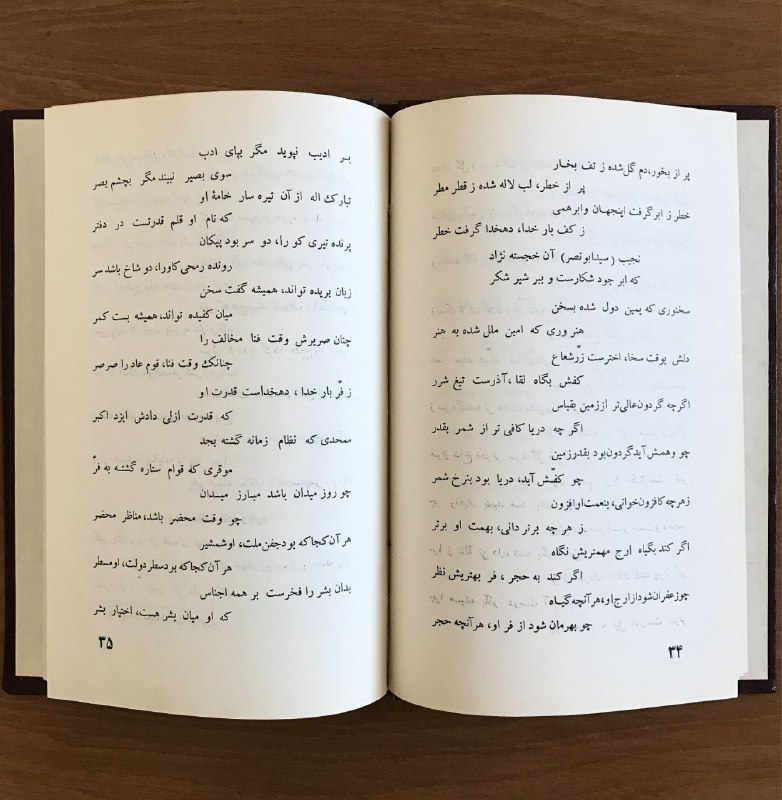 پر از بخور، دم گل شده ز تف بخار
پر از خطر، لب لاله شده ز قطر مطر
خطر ز ابر گرفت اینجهان و ابر همی
ز کف بار خدا، دهخدا گرفت خطر
نجیب (سیدابونصر) آن خجسته نژاد
که ابر جود شکارست و ببر شیر شکر
سخنوری که یمین دول شده بسخن
هنر وری که امین ملل شده به هنر
دلش بوقت سخا، اخترست زرّ شعاع
کفش بگاه لقا، آذرست تیغ شرر
اگرچه گردون عالی تر از زمین بقیاس
اگر چه دریا کافی تر از شمر بقدر
چو وهمش آید گردون بود بقدر زمین
چو کفّش آید، دریا بود بنرخ شمر
ز هرچه کافزون خوانی، بنعمت او افزون
ز هر چه برتر دانی، بهمت او برتر
اگر کند بگیاه ارج مهمتریش نگاه
اگر کند به حجر، فر بهتریش نظر
چو زعفران شود از ارج او، هر آنچه گیاه
چو بهرمان شود از فر او، هر آنچه حجر
۳۴
بر ادیب نپوید مگر بپای ادب
سوی بصیر نبیند مگر بچشم بصر
تبارک اله از آن تیره سار خامهٔ او
که نام او قلم قدرتست در دفتر
پرنده تیری کو را، دو سر بود پیکان
رونده رمحی کاورا، دو شاخ باشد سر
زبان بریده تواند، همیشه گفت سخن
میان کفیده تواند، همیشه بست کمر
چنان صریرش وقت فنا مخالف را
چنانک وقت فنا، قوم عاد را صرصر
ز فرّ بار خدا، دهخداست قدرت او
که قدرت ازلی دادش ایزد اکبر
ممجدی که نظام زمانه گشته بجد
موقری که قوام ستاره گشته به فرّ
چو روز میدان باشد مبارز میدان
چو وقت محضر باشد، مناظر محضر
هر آن کجا که بود جفن ملت، او شمشیر
هر آن کجا که بود سطر دولت، او مسطر
بدان بشر را فخرست بر همه اجناس
که او میان بشر هست، اختیار بشر
۳۵